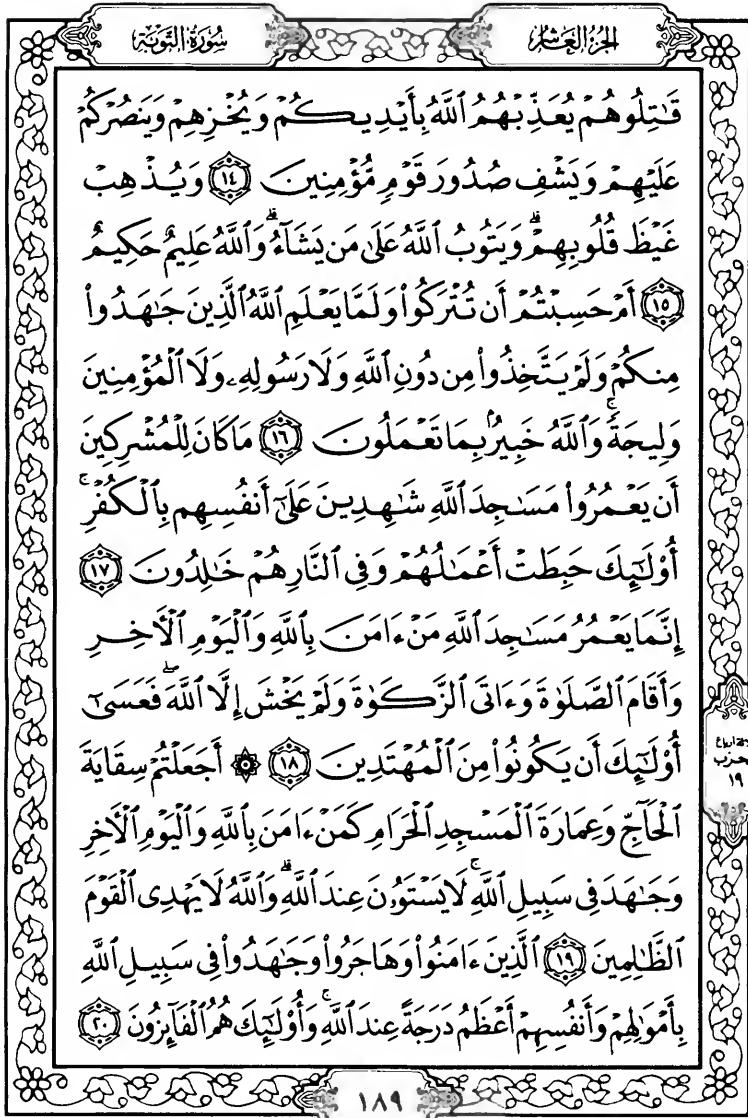 الجُزءُ العَاشِر
سُورَةُ التَّوْبَةِ
قَٰتِلُوهُمْ يُعَذِّبْهُمُ ٱللَّهُ بِأَيْدِيكُمْ وَيُخْزِهِمْ وَيَنصُرْكُمْ
عَلَيْهِمْ وَيَشْفِ صُدُورَ قَوْمٍ مُّؤْمِنِينَ ١٤ وَيُذْهِبْ
غَيْظَ قُلُوبِهِمْ ۗ وَيَتُوبُ ٱللَّهُ عَلَىٰ مَن يَشَآءُ ۗ وَٱللَّهُ عَلِيمٌ حَكِيمٌ
١٥ أَمْ حَسِبْتُمْ أَن تُتْرَكُوا۟ وَلَمَّا يَعْلَمِ ٱللَّهُ ٱلَّذِينَ جَٰهَدُوا۟
مِنكُمْ وَلَمْ يَتَّخِذُوا۟ مِن دُونِ ٱللَّهِ وَلَا رَسُولِهِۦ وَلَا ٱلْمُؤْمِنِينَ
وَلِيجَةً ۚ وَٱللَّهُ خَبِيرٌۢ بِمَا تَعْمَلُونَ ١٦ مَا كَانَ لِلْمُشْرِكِينَ
أَن يَعْمُرُوا۟ مَسَٰجِدَ ٱللَّهِ شَٰهِدِينَ عَلَىٰٓ أَنفُسِهِم بِٱلْكُفْرِ ۚ
أُو۟لَٰٓئِكَ حَبِطَتْ أَعْمَٰلُهُمْ وَفِى ٱلنَّارِ هُمْ خَٰلِدُونَ ١٧
إِنَّمَا يَعْمُرُ مَسَٰجِدَ ٱللَّهِ مَنْ ءَامَنَ بِٱللَّهِ وَٱلْيَوْمِ ٱلْءَاخِرِ
وَأَقَامَ ٱلصَّلَوٰةَ وَءَاتَى ٱلزَّكَوٰةَ وَلَمْ يَخْشَ إِلَّا ٱللَّهَ ۖ فَعَسَىٰٓ
أُو۟لَٰٓئِكَ أَن يَكُونُوا۟ مِنَ ٱلْمُهْتَدِينَ ١٨ ۞ أَجَعَلْتُمْ سِقَايَةَ
ٱلْحَآجِّ وَعِمَارَةَ ٱلْمَسْجِدِ ٱلْحَرَامِ كَمَنْ ءَامَنَ بِٱللَّهِ وَٱلْيَوْمِ ٱلْءَاخِرِ
وَجَٰهَدَ فِى سَبِيلِ ٱللَّهِ ۚ لَا يَسْتَوُۥنَ عِندَ ٱللَّهِ ۗ وَٱللَّهُ لَا يَهْدِى ٱلْقَوْمَ
ٱلظَّٰلِمِينَ ١٩ ٱلَّذِينَ ءَامَنُوا۟ وَهَاجَرُوا۟ وَجَٰهَدُوا۟ فِى سَبِيلِ ٱللَّهِ
بِأَمْوَٰلِهِمْ وَأَنفُسِهِمْ أَعْظَمُ دَرَجَةً عِندَ ٱللَّهِ ۚ وَأُو۟لَٰٓئِكَ هُمُ ٱلْفَآئِزُونَ ٢٠
حزب
١٩
١٨٩